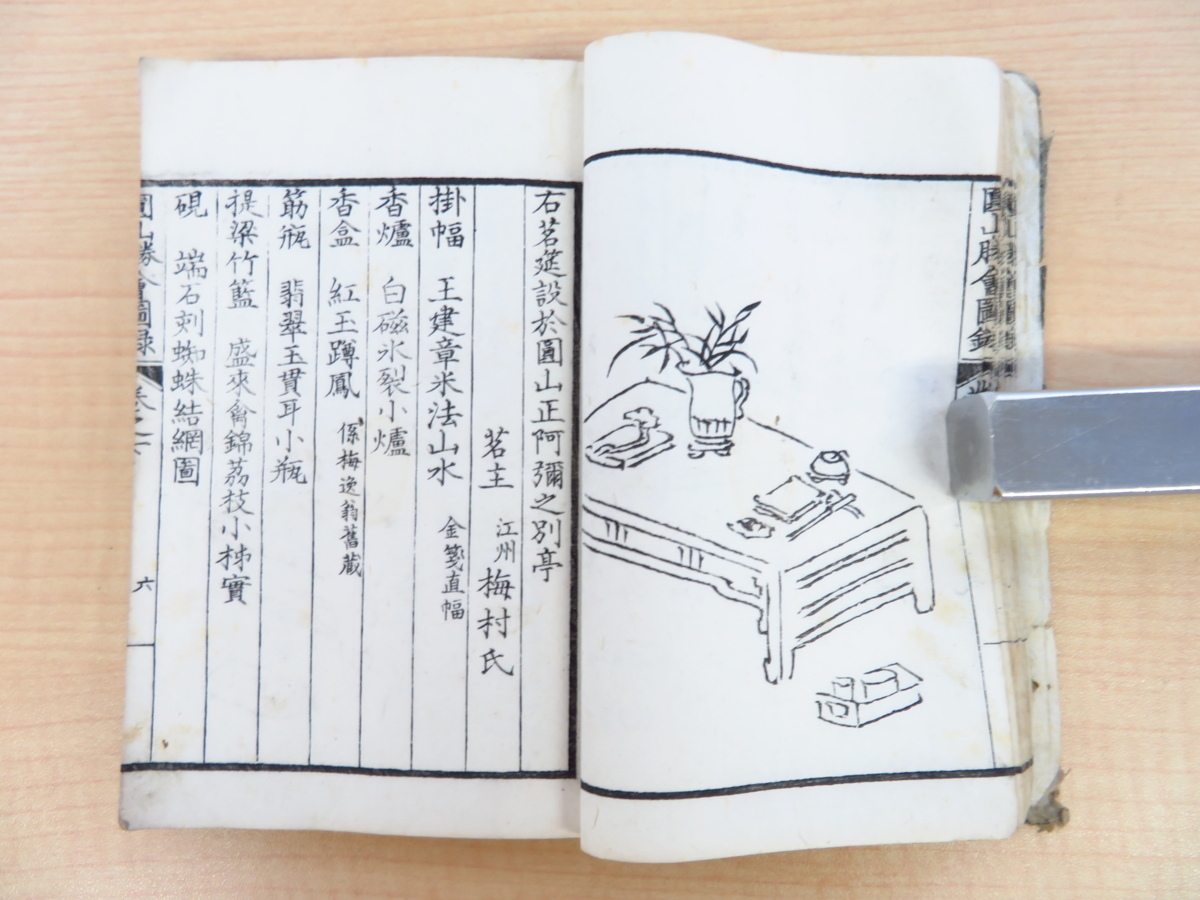 圓山勝會圖錄
右茗筵設於圓山正阿彌之別亭
茗主 江州 梅村氏
掛幅 王建章米法山水 金箋直幅
香爐 白磁氷裂小爐
香盒 紅玉蹲鳳 係梅逸翁舊藏
筋瓶 翡翠玉貫耳小瓶
提梁竹籃 盛來禽錦荔枝小柹實
硯 端石刻蜘蛛結網圖
圓山勝會圖录
六